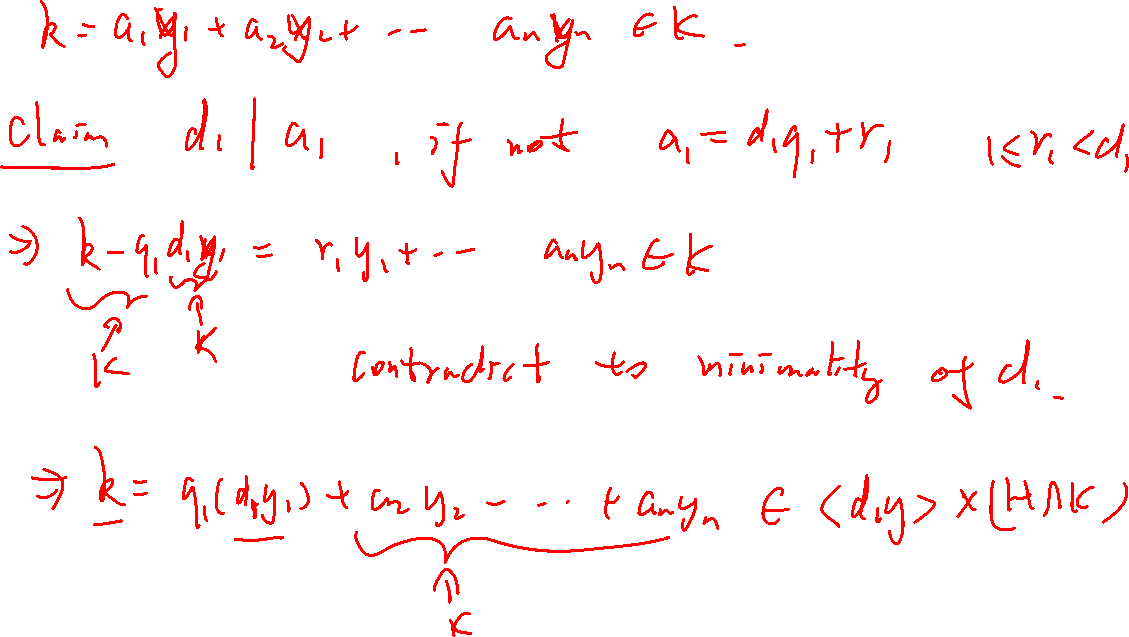 k = a₁y₁ + a₂y₂ + ... aₙyₙ ∈ K.
Claim d₁ | a₁, if not a₁ = d₁q₁ + r₁ 1 ≤ r₁ < d₁
⇒ k - q₁d₁y₁ = r₁y₁ + ... aₙyₙ ∈ K
K K
contradict to minimality of d₁.
⇒ k = q₁(d₁y₁) + a₂y₂ ... + aₙyₙ ∈ <d₁y> × (H∩K)
K